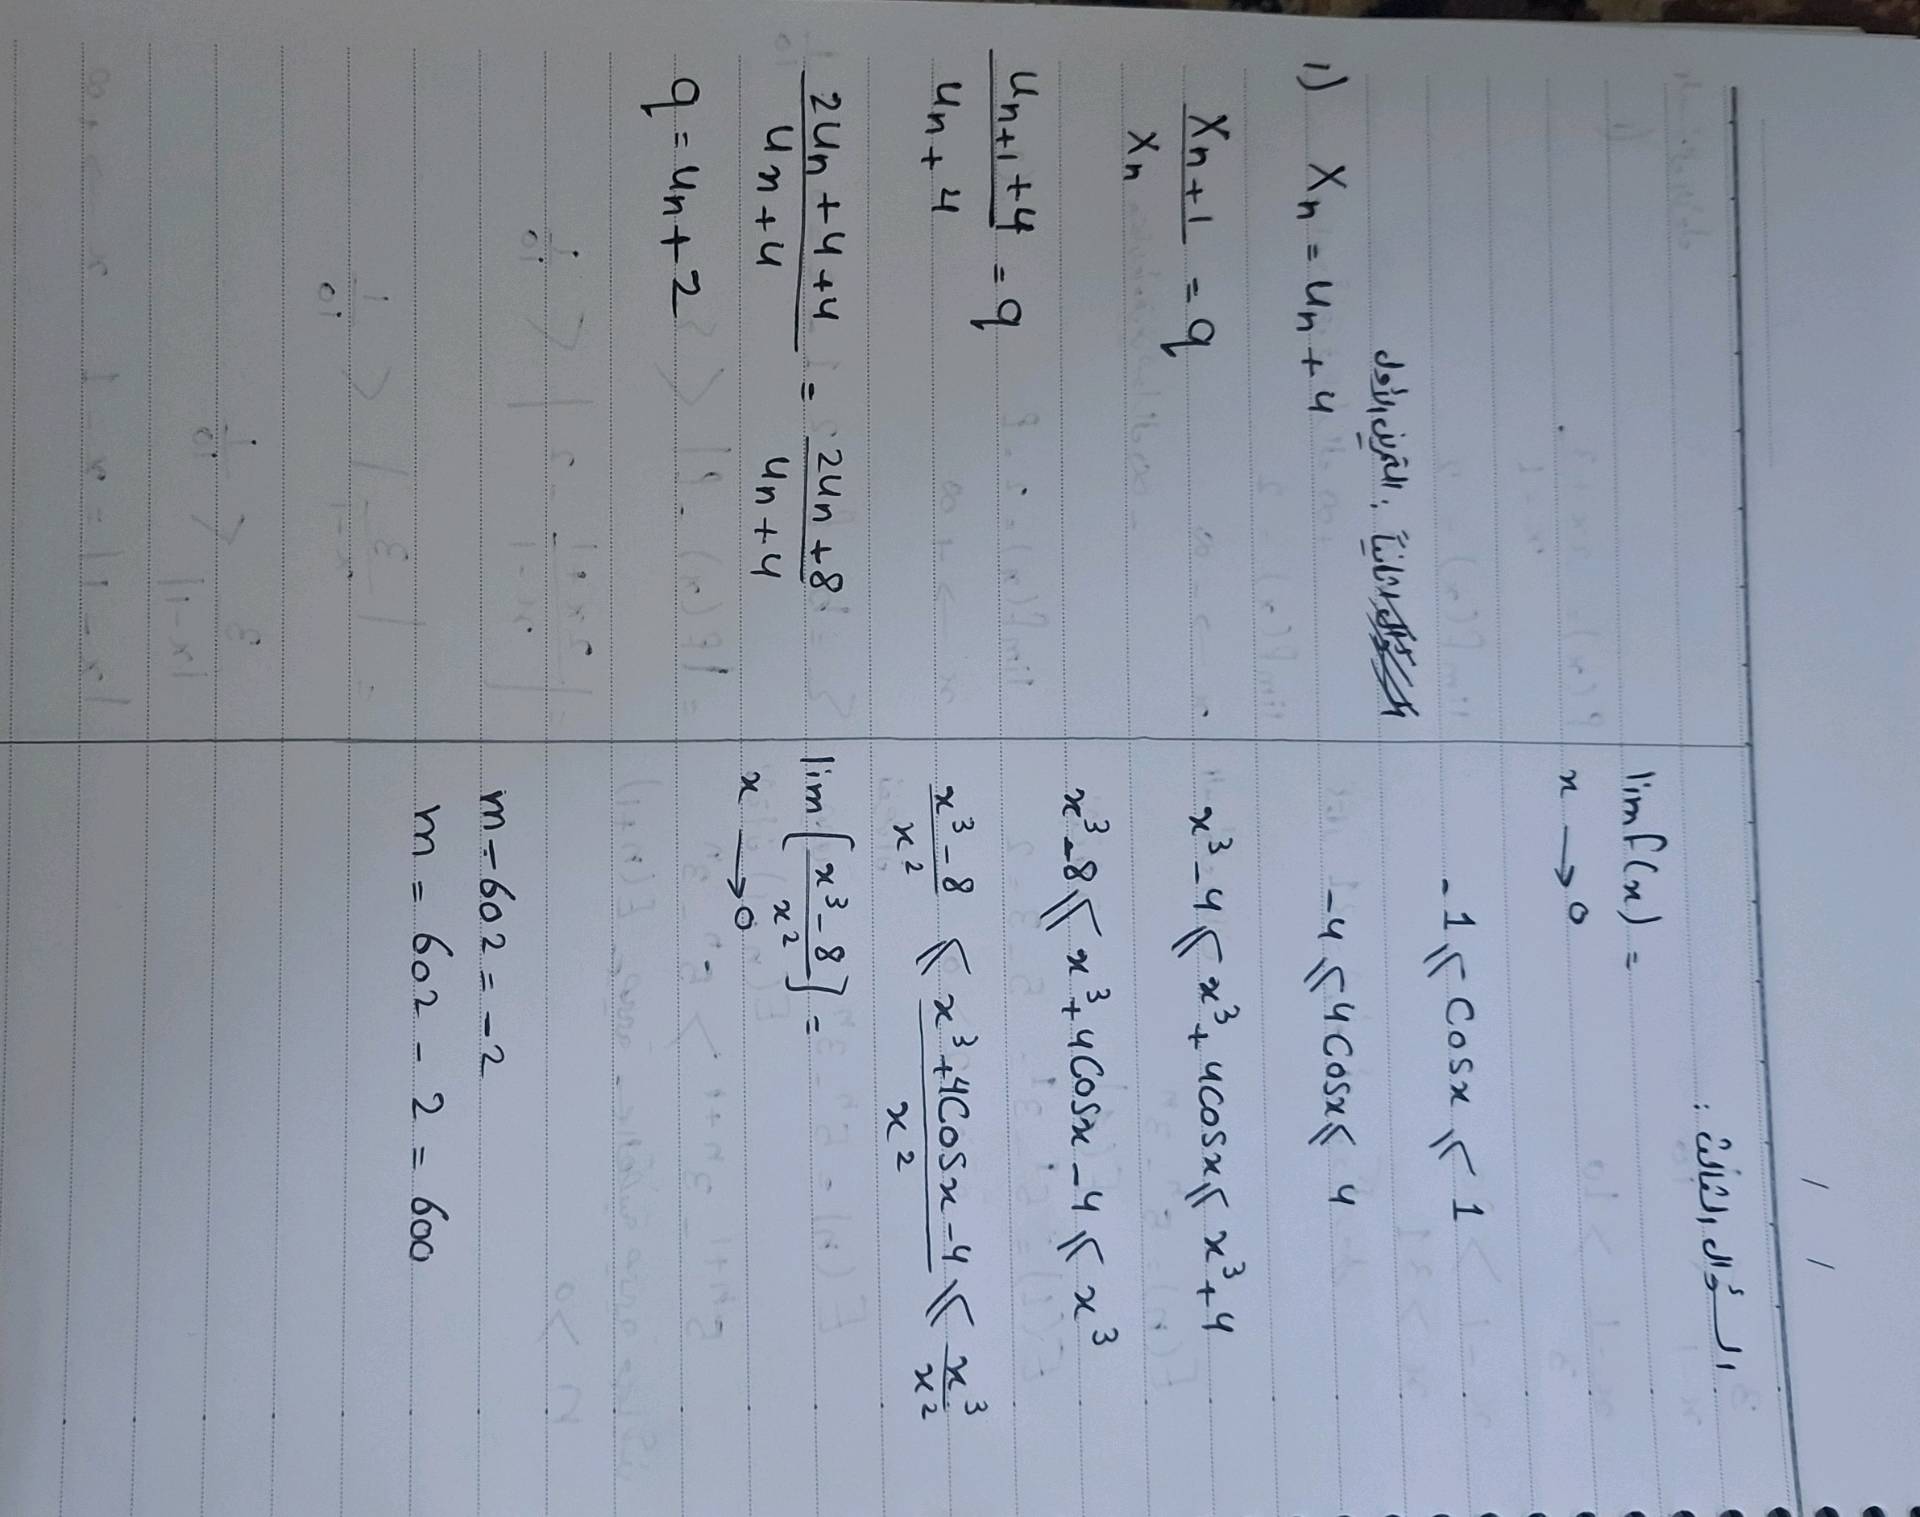 / /
السؤال الثالث:
lim f(x) =
x → 0
-1 ≤ Cosx ≤ 1
-4 ≤ 4Cosx ≤ 4
x³-4 ≤ x³+4Cosx ≤ x³+4
x³-8 ≤ x³+4Cosx-4 ≤ x³
(x³-8)/x² ≤ (x³+4Cosx-4)/x² ≤ x³/x²
lim [(x³-8)/x²] =
x → 0
m-602 = -2
m = 602 - 2 = 600
ثانياً: التمرين الأول
1) Xn = un + 4
Xn+1 / Xn = q
(un+1 + 4) / (un + 4) = q
(2un + 4 + 4) / (un + 4) = (2un + 8) / (un + 4)
q = un + 2